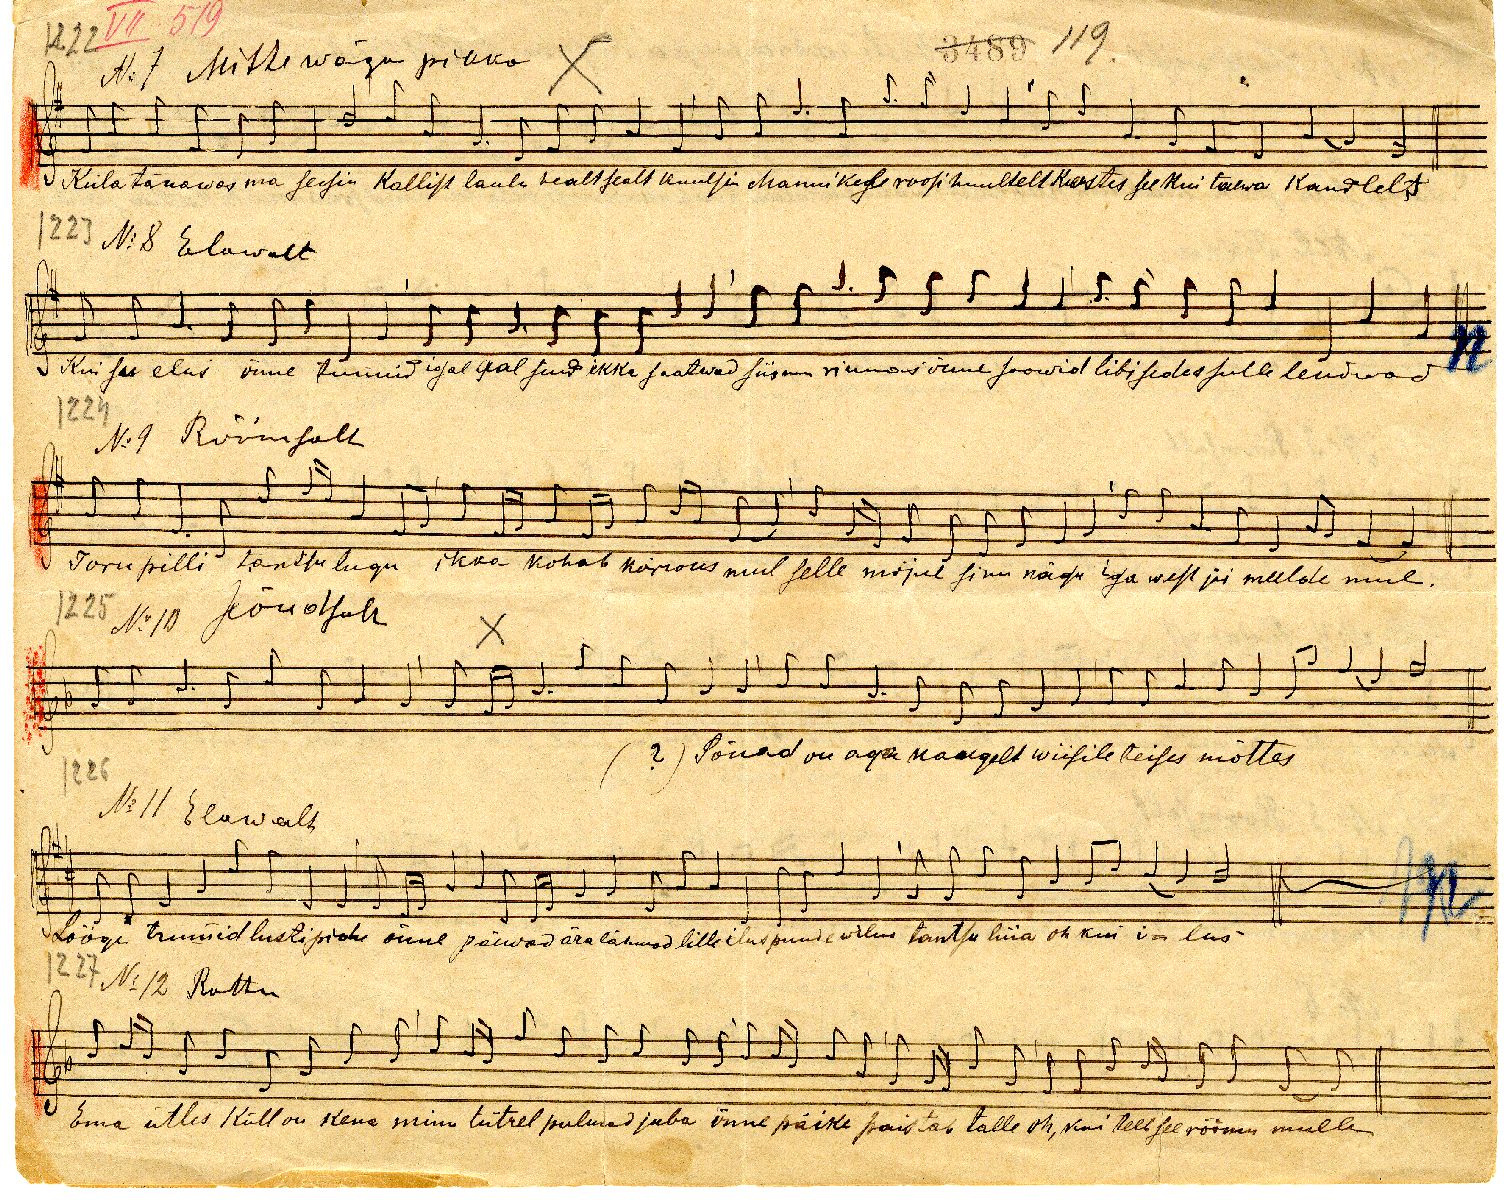 1222 VII 519 3489 119.
№ 7 Mitte wäga pikka
Küla tänawas ma seisin Kallist laulu sealt kuulsin Mannikese roosi huultelt Kostis see kui taewa Kandlelt
1223 № 8 Elawalt
Kui su elus õnne tunnid igal pool sind ikka saatwad siis mu rinnus õnne soowid libisedes sulle lendwad
1224
№ 9 Rõõmsalt
Toru pilli tantsu lugu ikka kohab kõrwus mul selle mõjul sinu nägu iga west jäi meelde mul.
1225 № 10 Kõndsalt
(?) Sõnad on aga kaugelt wiisile teises mõttes
1226
№ 11 Elawalt
Lööge trummid lusti pidu õnne päewad ära lähnud lille ilus puude wilus tantsu lüüa oh kui ilus
1227 № 12 Ruttu
Ema ütles Küll on kena minu tütrel pulmad juba õnne päike paistab talle oh, kui teeb see rõõmu mulle